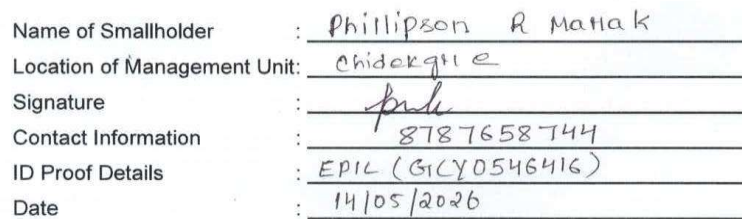 Name of Smallholder : Phillipson R Marak
Location of Management Unit: Chidekgre
Signature :
Contact Information : 8787658744
ID Proof Details : EPIC (GCY0546416)
Date : 14/05/2026